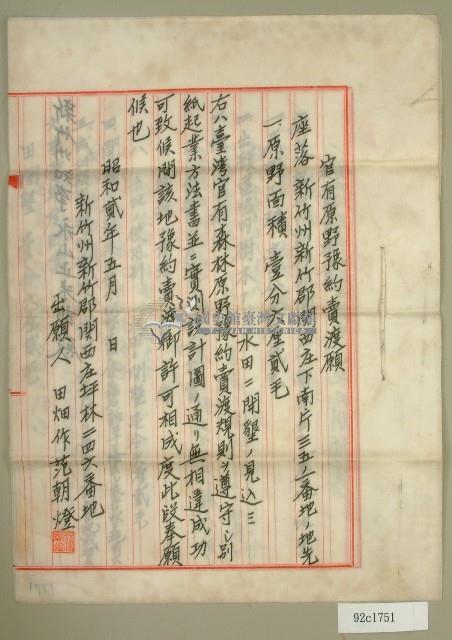 官有原野豫約賣渡願
座落 新竹州新竹郡関西庄下南片三五ノ二番地ノ地先
一原野面積 壹分六厘貳毛
水田ニ開墾ノ見込ミ
右ハ臺灣官有森林原野豫約賣渡規則ヲ遵守シ別
紙起業方法書並ニ實測設計圖ノ通リ無相違成功
可致候間該地豫約賣渡御許可相成度此段奉願
候也
昭和貳年五月 日
新竹州新竹郡関西庄坪林二四六番地
出願人 田畑作 范朝燈
國史館臺灣文獻館
TAIWAN HISTORICA
1751
92c1751